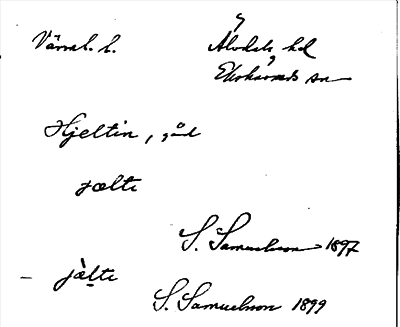 Värml. l. Älvdals hd
Ekshärads sn
Hjeltin, gård
jælte
S. Samuelsson 1897
– jä̀lte
S. Samuelsson 1899